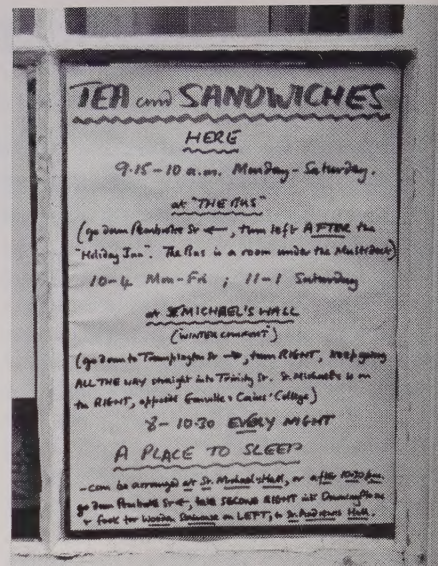 TEA and SANDWICHES
HERE
9.15-10 a.m. Monday-Saturday.
at "THE BUS"
(go down Pembroke St ←, turn left AFTER the
"Holiday Inn". The Bus is a room under the Multistorey)
10-4 Mon-Fri ; 11-1 Saturday
at St MICHAEL'S HALL
(WINTER COMFORT)
(go down to Trumpington St →, turn RIGHT, keep going
ALL THE WAY straight into Trinity St. St. Michael's is on
the RIGHT, opposite Gonville & Caius College)
8-10.30 EVERY NIGHT
A PLACE TO SLEEP
- can be arranged at St. Michael's Hall, or after 10.30 p.m.
go down Pembroke St ←, take SECOND RIGHT into Downing Place
+ look for Wooden Staircase on LEFT, to St. Andrews Hall.